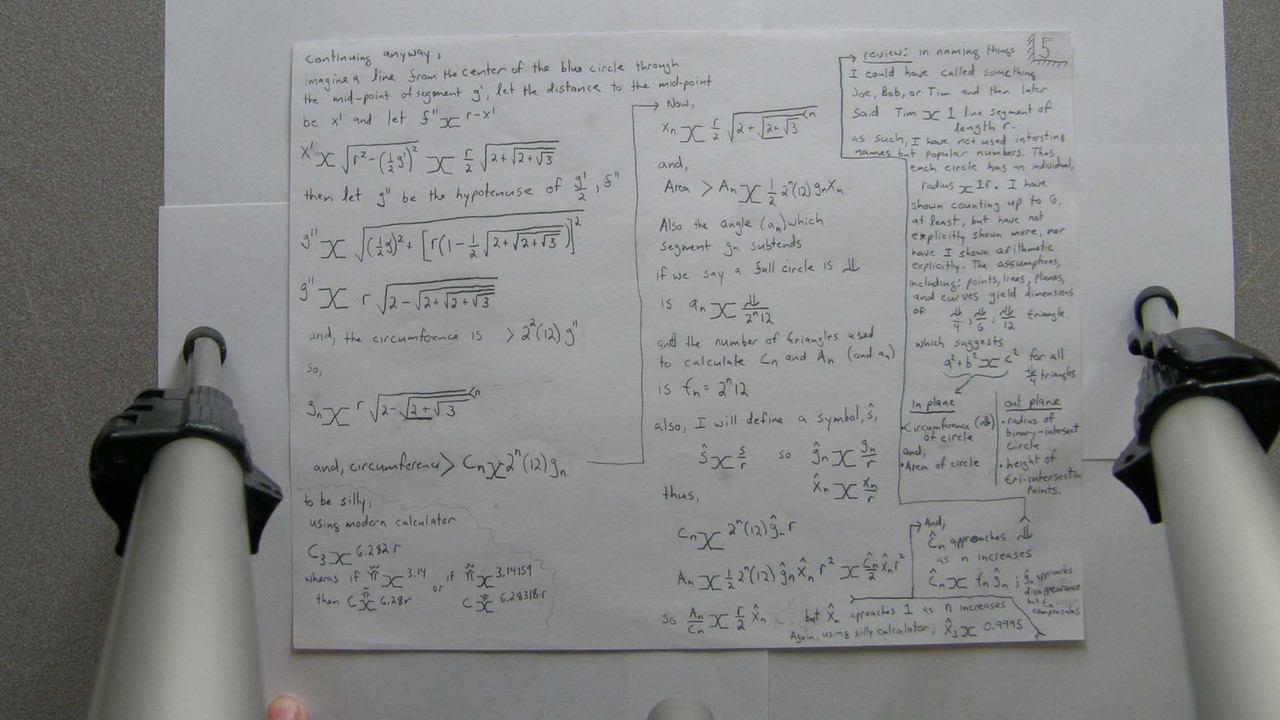 continuing anyway,
imagine a line from the center of the blue circle through
the mid-point of segment g', let the distance to the mid-point
be x' and let f'' X r-x'
x' X √(r²-(½g')²) X r/2 √(2+√(2+√3))
then let g'' be the hypotenuse of g'/2, f''
g'' X √((½g')²+[r(1-½√(2+√(2+√3)))]²)
g'' X r√(2-√(2+√(2+√3)))
and, the circumference is > 2²(12)g''
so,
gn X r√(2-√(2+√3)) n
and, circumference > Cn X 2ⁿ(12)gn
to be silly,
using modern calculator
C₃ X 6.282r
whereas if π̃ X 3.14 or if π̃ X 3.14159
then C X 6.28r C X 6.28318r
Now,
xn X r/2 √(2+√(2+√3)) n
and,
Area > An X ½ 2ⁿ(12)gnxn
Also the angle (an) which
segment gn subtends
if we say a full circle is
is an X /2ⁿ12
and the number of triangles used
to calculate Cn and An (and an)
is tn = 2ⁿ12
also, I will define a symbol, ŝ,
ŝ X s/r so ĝn X gn/r
x̂n X xn/r
thus,
Cn X 2ⁿ(12)ĝn r
An X ½ 2ⁿ(12) ĝn x̂n r² X Ĉn/2 x̂n r²
so An/Cn X r/2 x̂n but x̂n aproaches 1 as n increases
Again, using silly calculator, x̂₃ X 0.9995
15
review: in naming things
I could have called something
Joe, Bob, or Tim and then later
said Tim X 1 line segment of
length r.
as such, I have not used intersting
names but popular numbers. Thus
each circle has an individual,
radius X 1r. I have
shown counting up to 6,
at least, but have not
explicitly shown more, nor
have I shown arithmetic
explicitly. The assumptions,
including: points, lines, planes,
and curves yield dimensions
of /4, /6, /12 triangle.
which suggests
a²+b² X c² for all
/4 triangles
In plane
•Circumference
of circle
and,
•Area of circle
out plane
•radius of
binary-intersect
circle
•height of
tri-intersection
points.
And,
Ĉn approaches
as n increases
Ĉn X tn ĝn ; ĝn approaches
disappearance
but tn
compensates